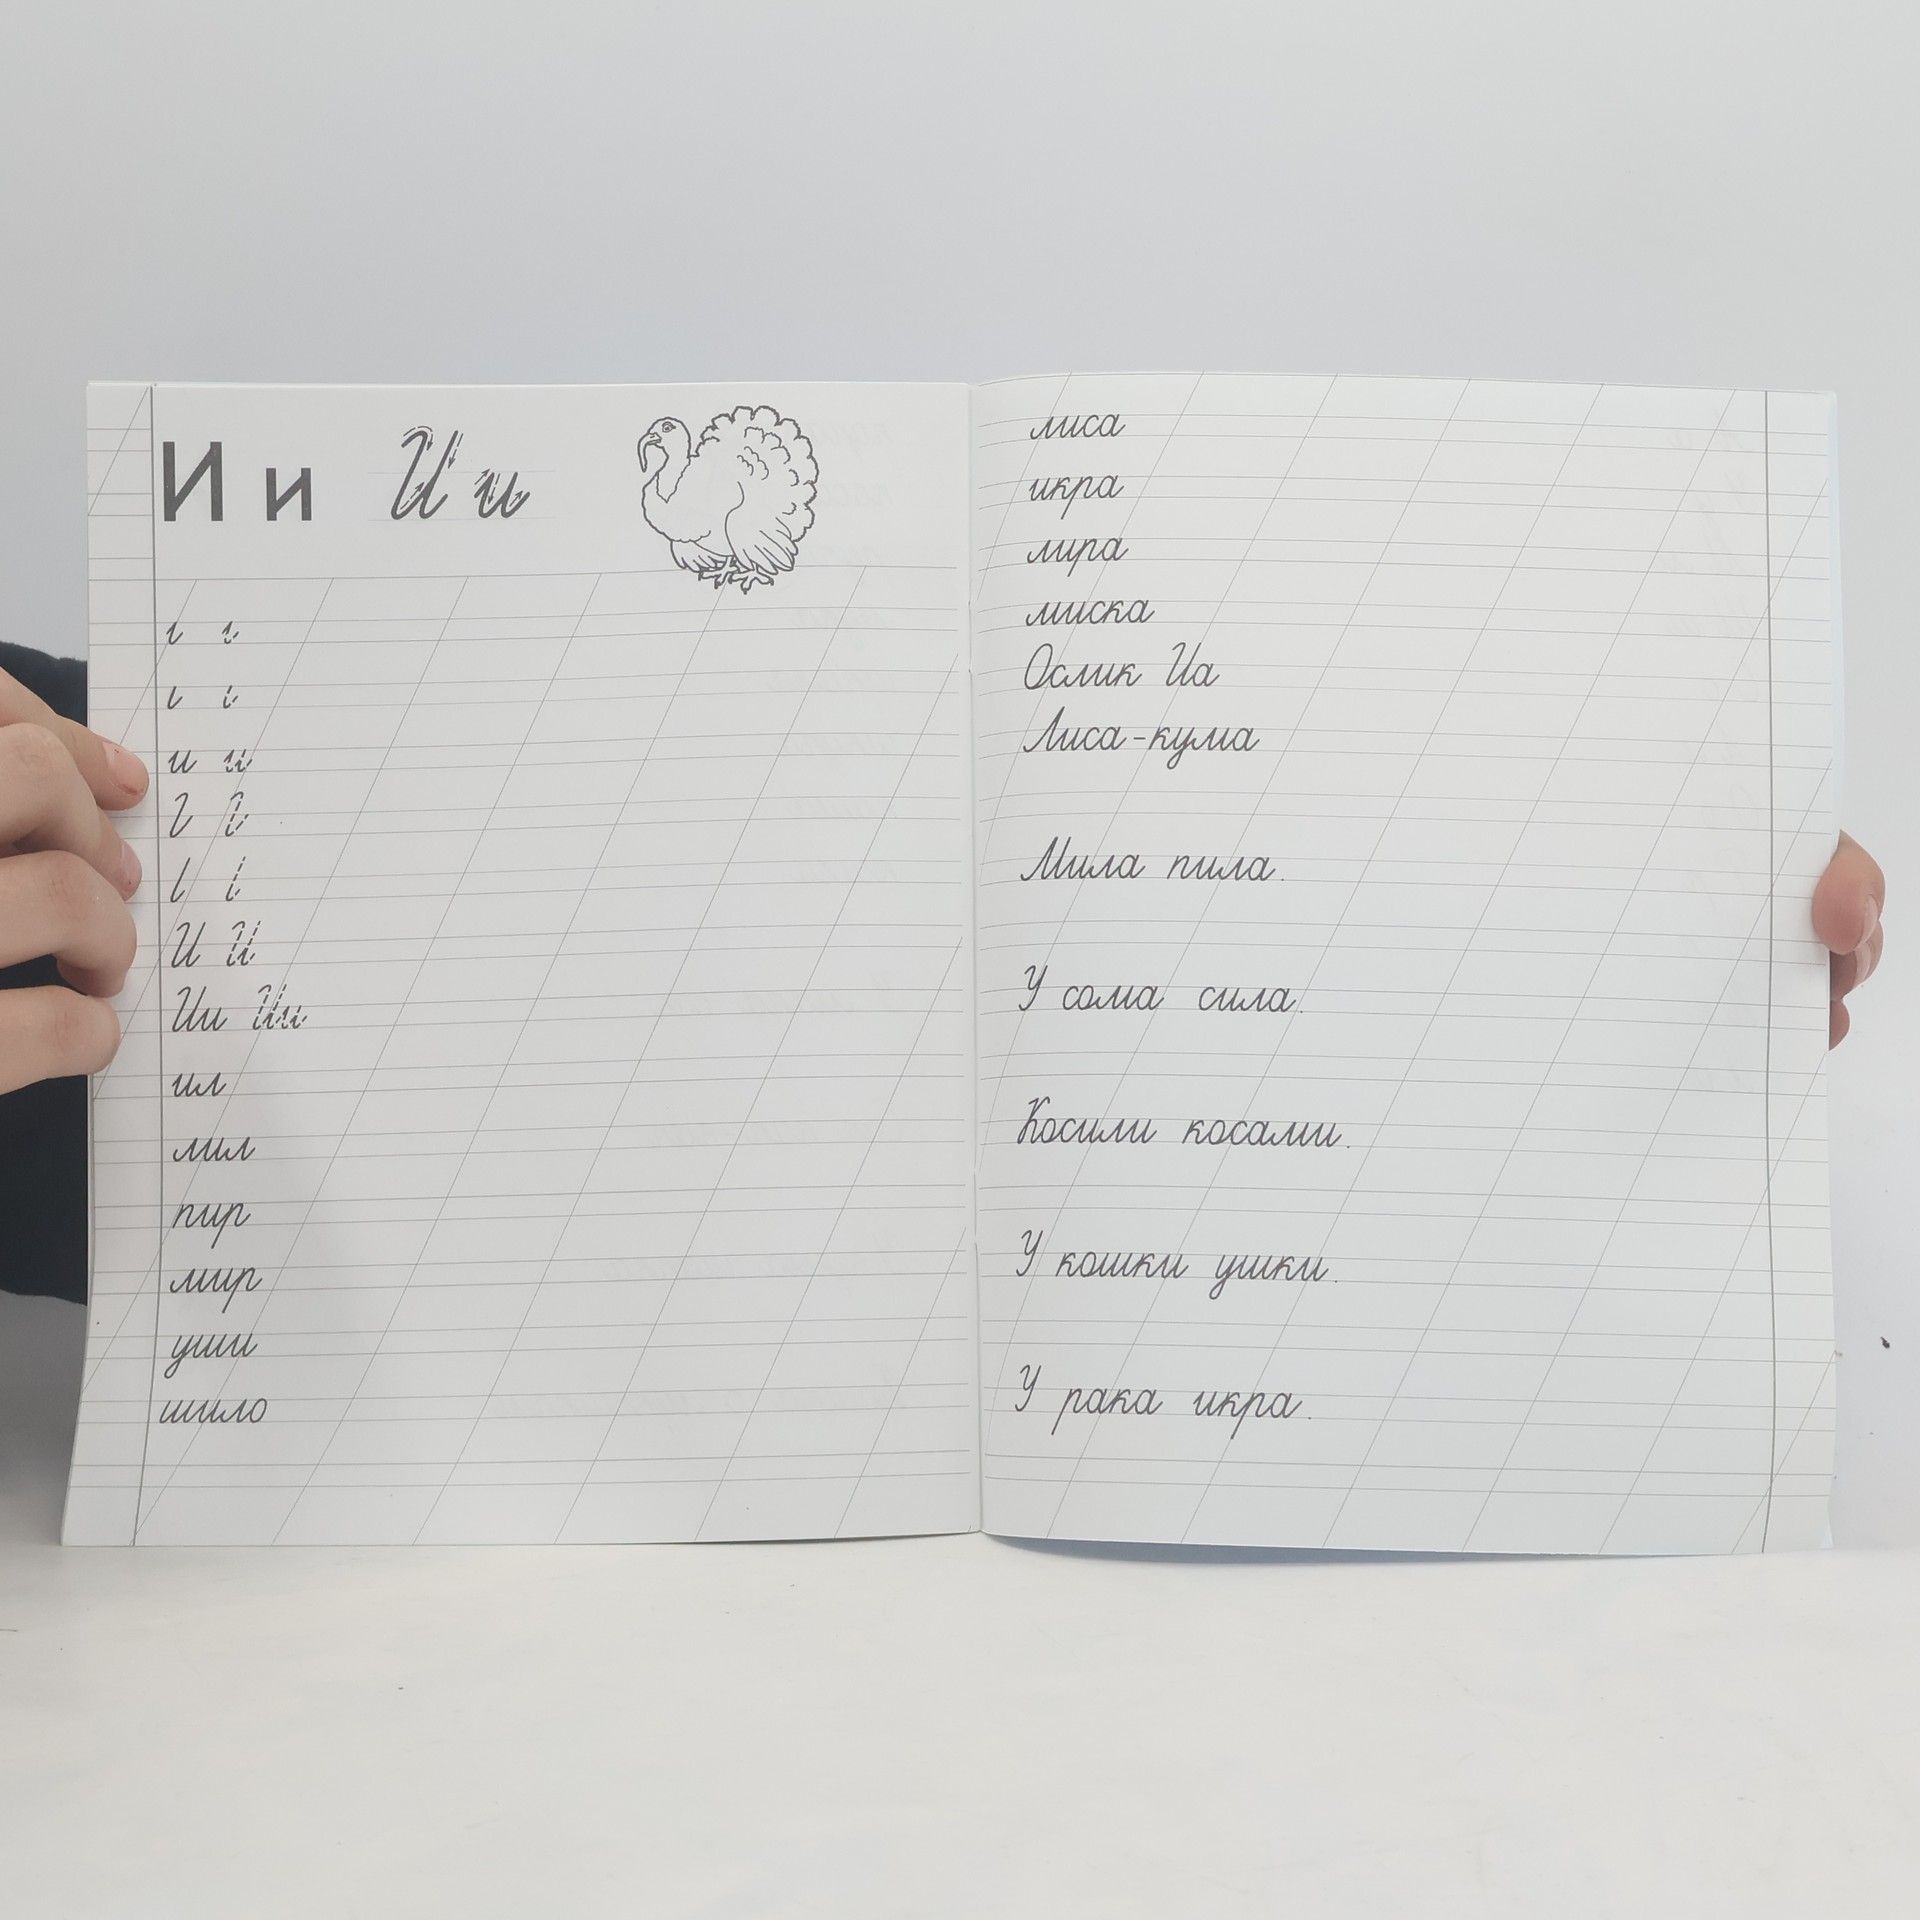 И и И и
и и
И И
Ии Ии
ил
мил
пир
мир
уши
шило
лиса
икра
лира
миска
Ослик Иа
Лиса-кума
Мила пила.
У сома сила.
Косили косами.
У кошки ушки.
У рака икра.